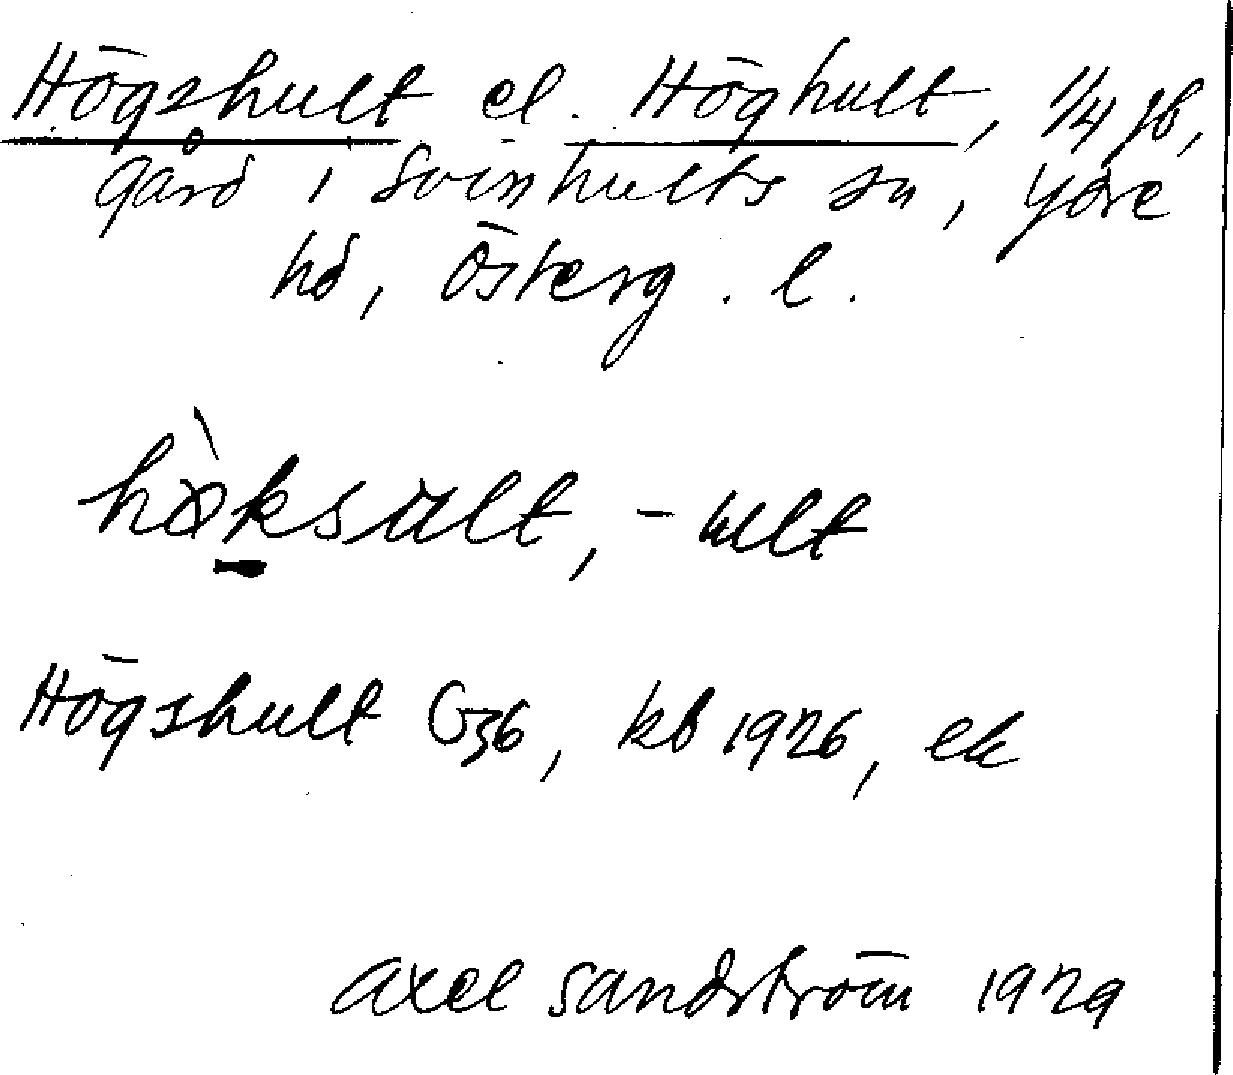 Högshult el. Höghult, 1/4 jb,
gård i Svinhults sn, Ydre
hd, Österg. l.
hø̀ksult, -ult
Högshult G36, kb 1926, ek
Axel Sandström 1929